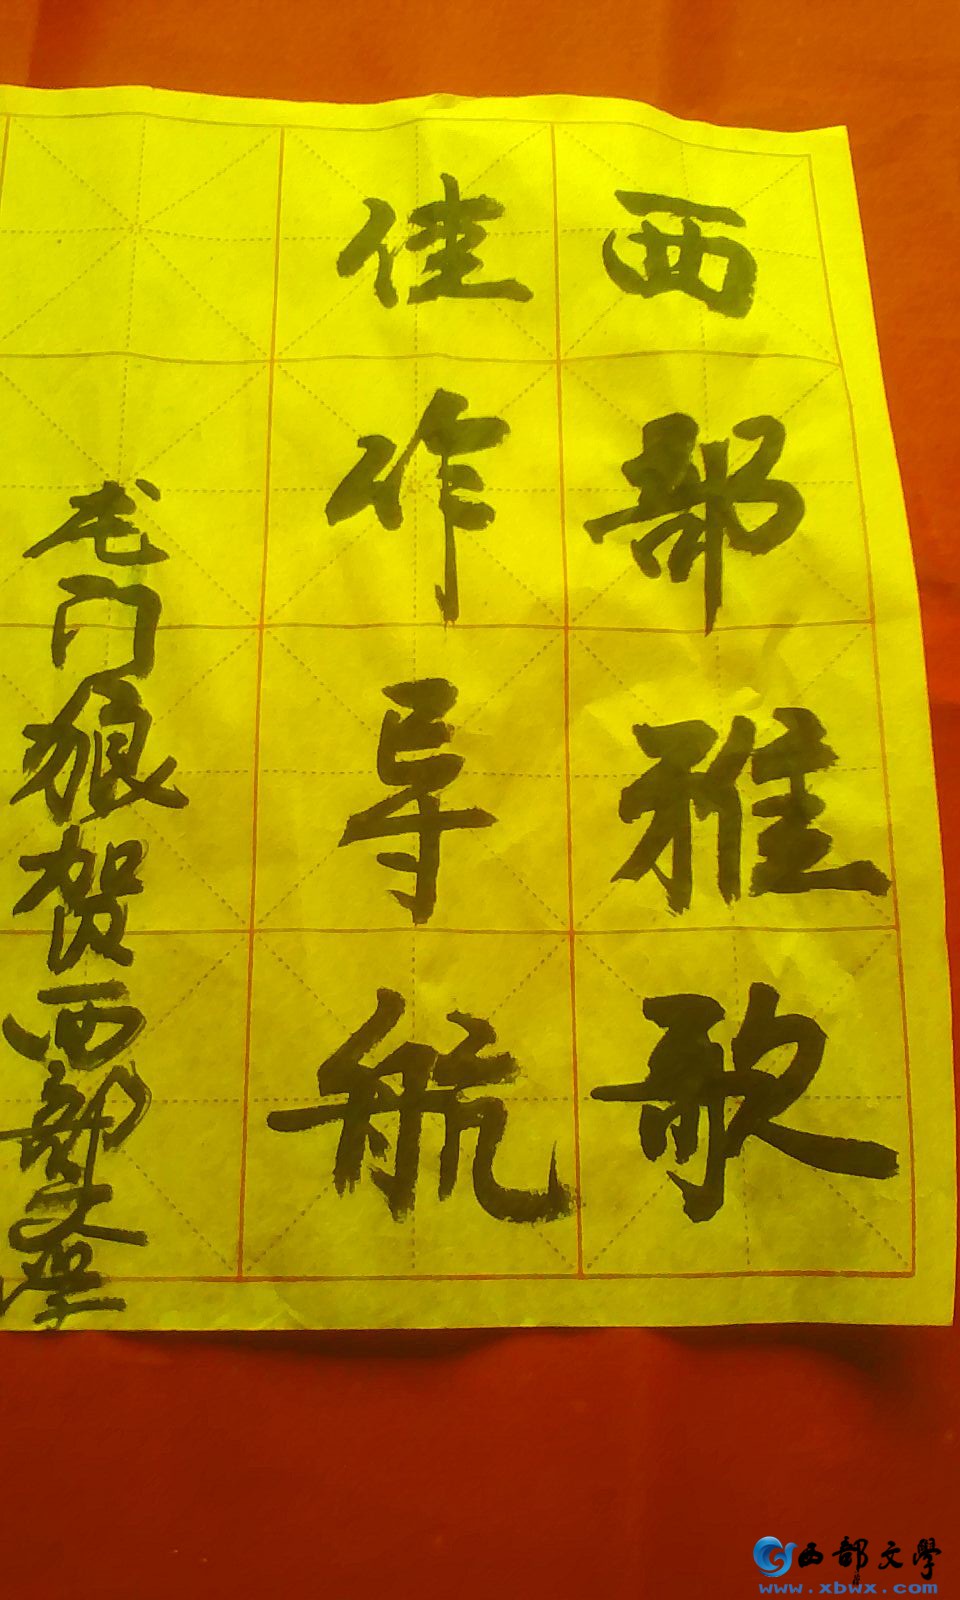 西部雅歌
佳作导航
龙门狼贺西部文学
西部文學
www.xbwx.com